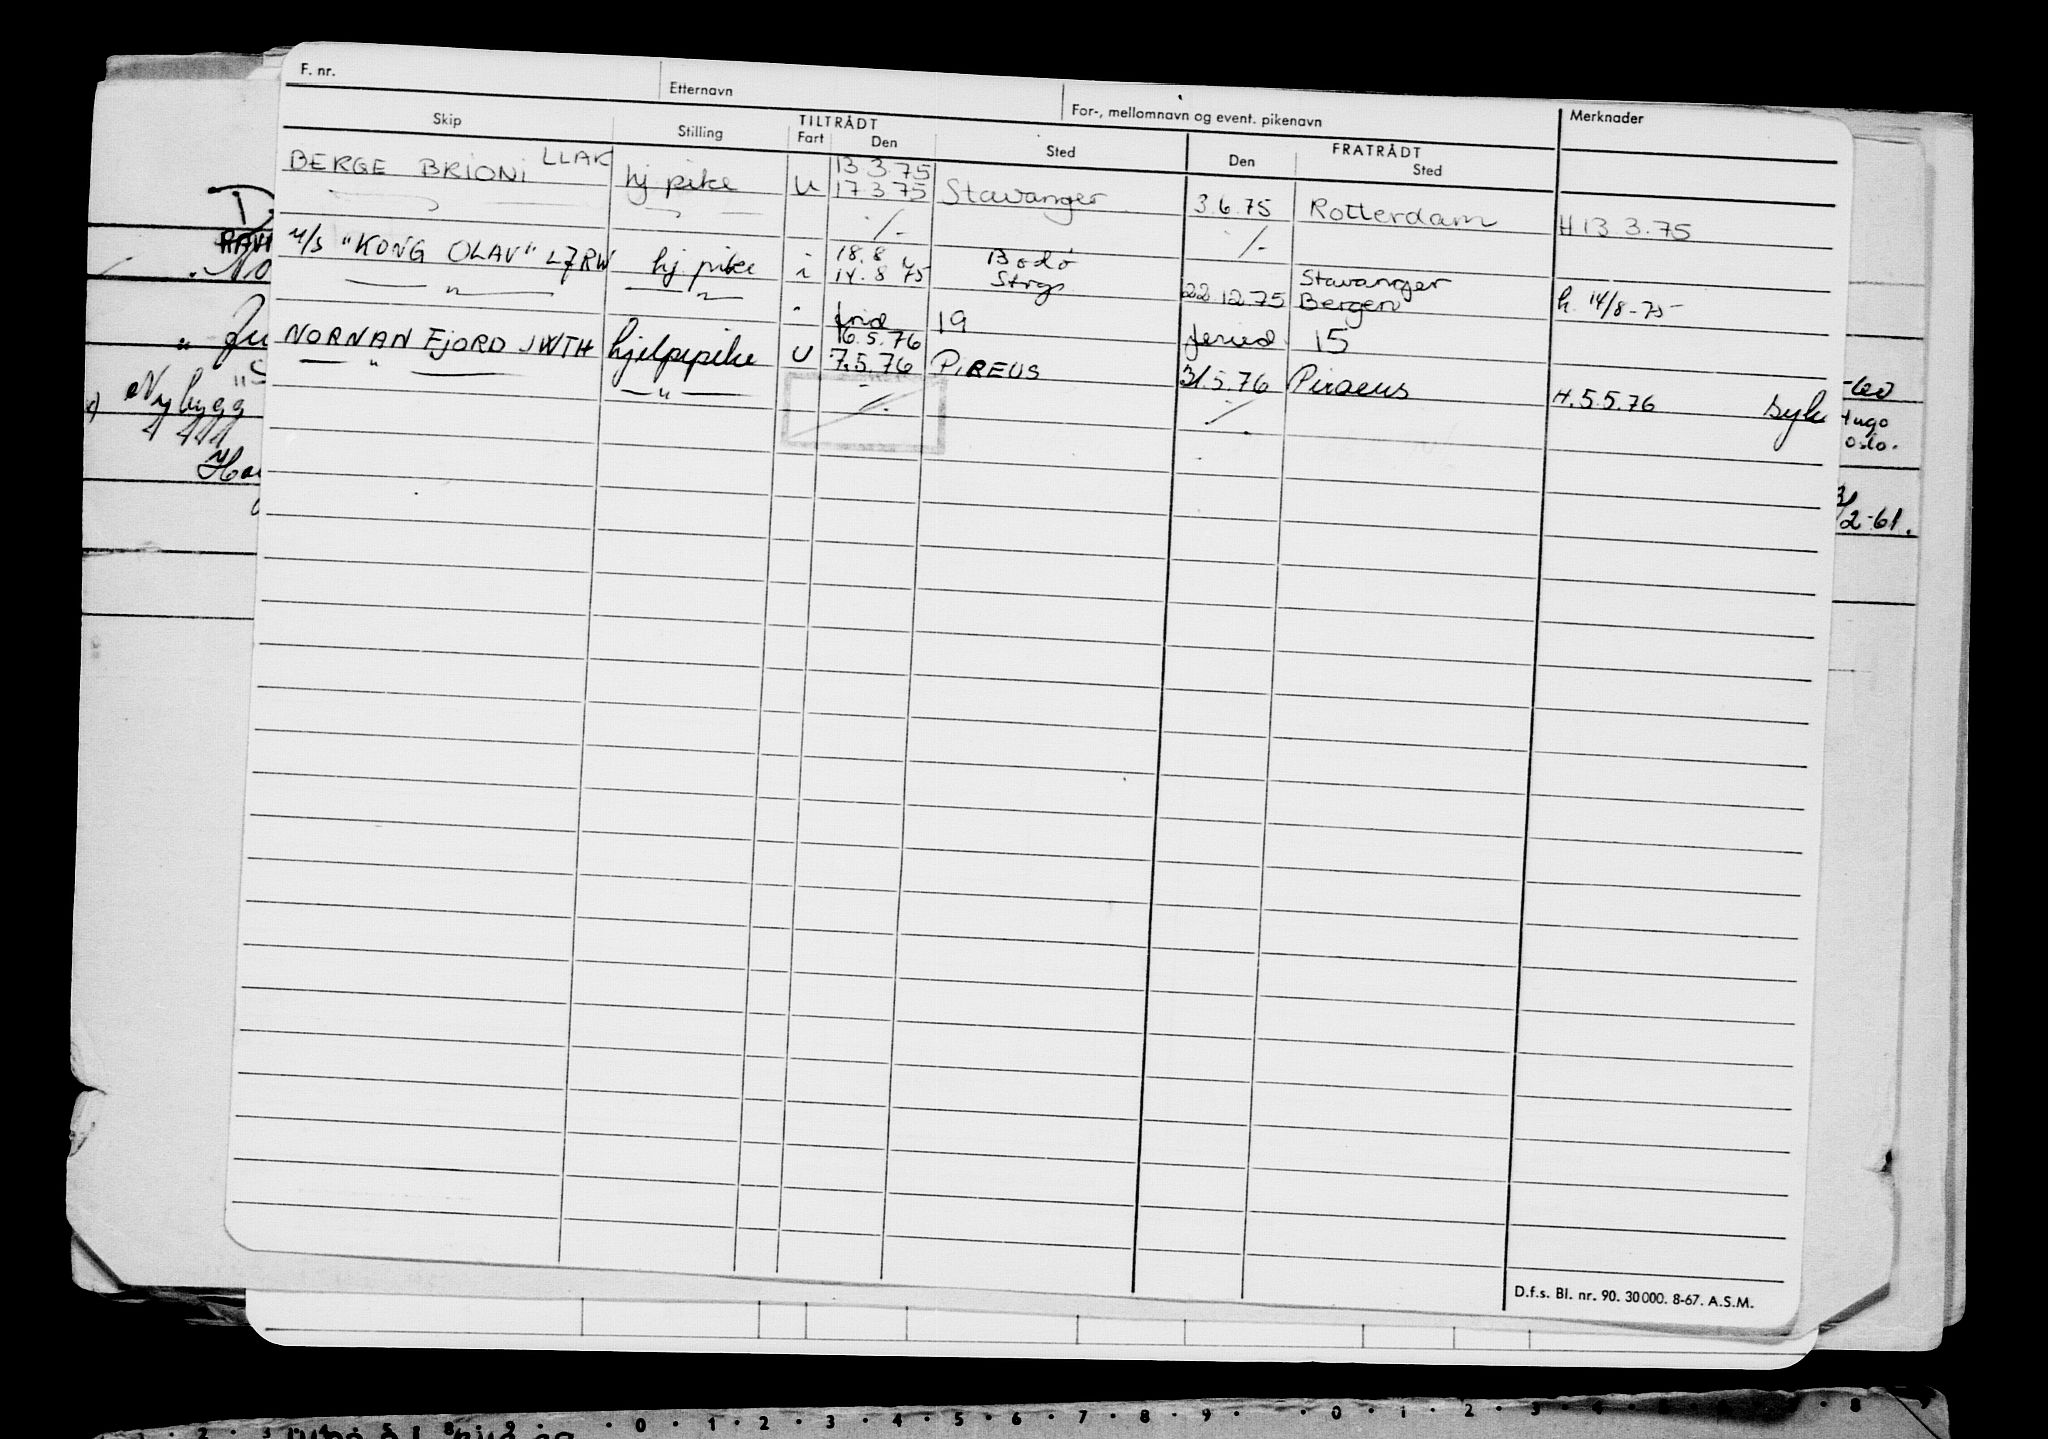 F. nr.
Etternavn
For-, mellomnavn og event. pikenavn
Merknader
Skip
Stilling
TILTRÅDT
Fart
Den
Sted
FRATRÅDT
Den
Sted
BERGE BRIONI LLAK hj pike U 13 3.75
17 3 75 Stavanger 3.6.75 Rotterdam H 13 3.75
M/S "KONG OLAV" LJRW hj. pike i 18.8 Bodø Stavanger
— " — — " — i 14.8 75 Strgs 22 12.75 Bergen h. 14/8-75
19 15
NORNAN FJORD JWTH hjelpepike U 16.5.76
7.5.76 PIREUS 31.5.76 Piraeus H.5.5.76 syk
— " — — " —
Nybygg
Hugo
Oslo.
/2-61.
D.f.s. Bl. nr. 90. 30 000. 8-67. A.S.M.
0 1 2 3 4 5 6 7 8 9 0 1 2 3 4 5 6 7 8